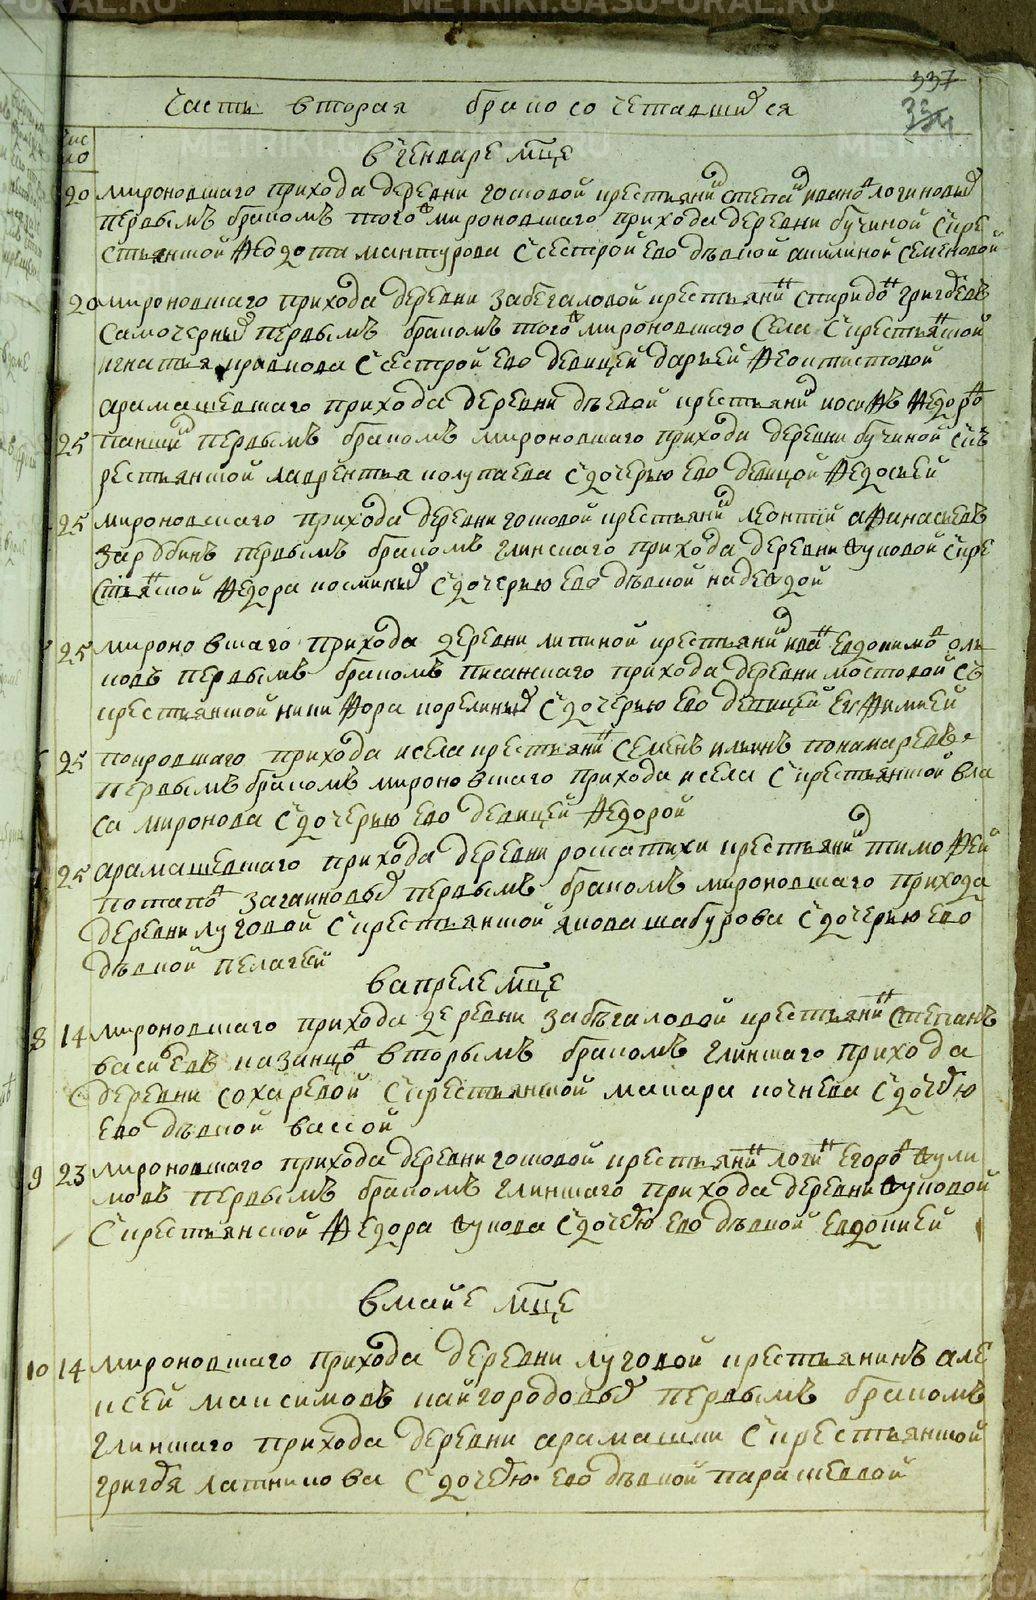 METRIKI.GASO-URAL.RU
337
Часть вторая бракосочетавшихся
Число
в генваре мце
20 мироновскаго прихода деревни гоговой крестьянин степан иванов логиновых
первым браком того ж мироновскаго прихода деревни бучиной с кре
стьянской федота мантурова с сестрой ево девкой акилиной семеновой
20 мироновскаго прихода деревни забегаловой крестьянин спиридон григорьевъ
самочерных первымъ бракомъ того ж мироновскаго села с крестьянской
игнатья с сестрой ево девицей дарьей феоктистовой
арамашевскаго прихода деревни деевой крестьянин иосифъ федоров
25 первымъ бракомъ мироновскаго прихода деревни бучиной с к
рестьянской лаврентья полупаева с дочерью ево девицой федосьей
25 мироновскаго прихода деревни гоговой крестьянин леонтий афанасьевъ
первымъ бракомъ глинскаго прихода деревни с кре
стьянской федора косминых с дочерью ево девкой надеждой
25 мироновскаго прихода деревни липиной крестьянин иван евдокимов оль
ковъ первымъ бракомъ писанскаго прихода деревни мостовой съ
крестьянской никифора корелиных с дочерью ево девицей евфимией
25 покровскаго прихода и села крестьянин семенъ ильинъ понамаревъ
первымъ бракомъ мироновскаго прихода и села с крестьянской вла
са миронова с дочерью ево девицей федорой
25 арамашевскаго прихода деревни рошатихи крестьянин тимофей
потапов загаиновых первымъ бракомъ мироновскаго прихода
деревни луговой с крестьянской якова шабурова с дочерью ево
девкой пелагей
в апреле мце
8 14 мироновскаго прихода деревни забегаловой крестьянин степанъ
васильевъ казанцов вторымъ бракомъ глинскаго прихода
деревни сохаревой с крестьянской макара кочнева с дочерью
ево девкой вассой
9 23 мироновскаго прихода деревни гоговой крестьянин логин егоров жули
мовъ первымъ бракомъ глинскаго прихода деревни жуковой
с крестьянской федора жукова с дочерью ево девкой евдокией
в майе мце
10 14 мироновскаго прихода деревни луговой крестьянинъ але
ксей максимовъ кайгородовых первымъ бракомъ
глинскаго прихода деревни арамашки с крестьянской
григорья латникова с дочерью ево девкой парасковьей